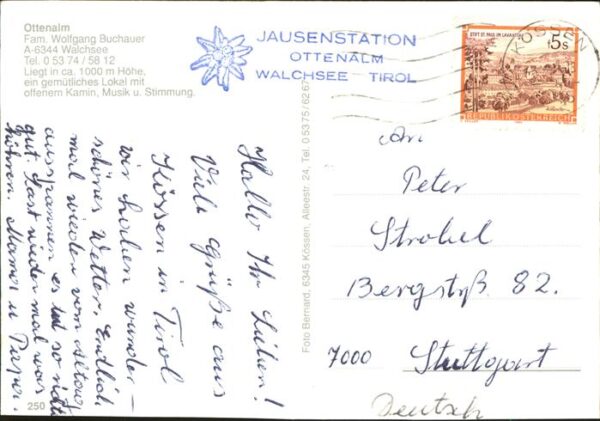 Ottenalm
Fam. Wolfgang Buchauer
A-6344 Walchsee
Tel. 0 53 74 / 58 12
Liegt in ca. 1000 m Höhe,
ein gemütliches Lokal mit
offenem Kamin, Musik u. Stimmung.
JAUSENSTATION
OTTENALM
WALCHSEE TIROL
KÖSSEN
STIFT ST. PAUL IM LAVANTTAL
5s
REPUBLIK ÖSTERREICH
Hallo Ihr Lieben!
Viele Grüße aus
Kössen in Tirol
wir haben wunder-
schönes Wetter. Endlich
mal wieder vom Alltag
ausspannen es tut so richtig
gut. Lasst wieder mal was
hören. Mama u Papa.
Foto Bernard, 6345 Kössen, Alleestr. 24, Tel. 0 5375/6267
250
An
Peter
Strobel
Bergstr. 82.
7000 Stuttgart
Deutsch